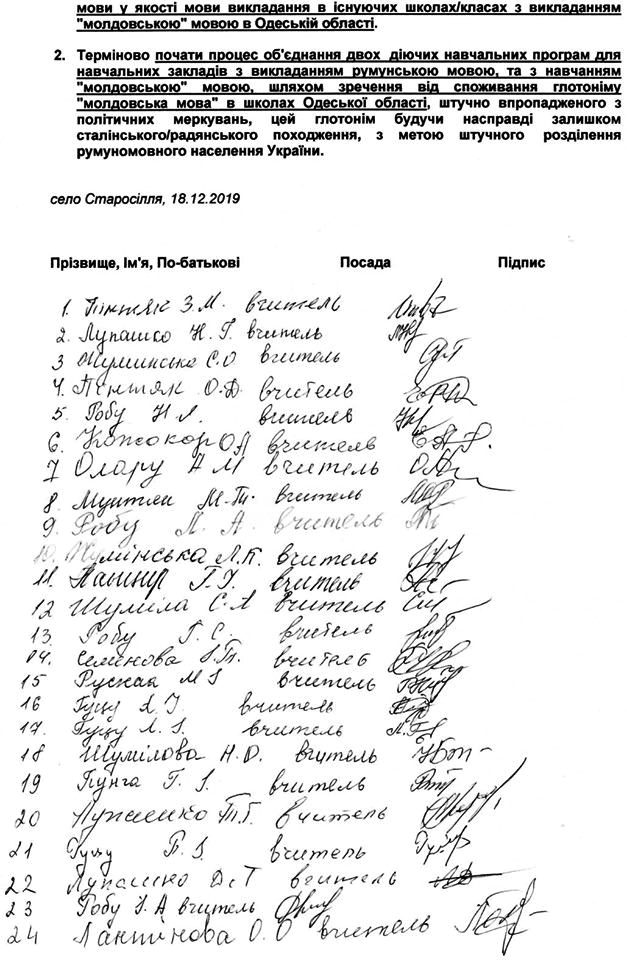 мови у якості мови викладання в існуючих школах/класах з викладанням
"молдовською" мовою в Одеській області.
2. Терміново почати процес об'єднання двох діючих навчальних програм для
навчальних закладів з викладанням румунською мовою, та з навчанням
"молдовською" мовою, шляхом зречення від споживання глотоніму
"молдовська мова" в школах Одеської області, штучно впропадженого з
політичних меркувань, цей глотонім будучи насправді залишком
сталінського/радянського походження, з метою штучного розділення
румуномовного населення України.
село Старосілля, 18.12.2019
Прізвище, Ім'я, По-батькові Посада Підпис
1. Пінтяк З.М. вчитель
2. Лупашко Н. Г. вчитель
3 С.О вчитель
4. Пентяк О.Д. вчитель
5. Робу Н Л. вчитель
6. Кожокар О Л вчитель
7 Олару А М вчитель
8. вчитель
9. Робу Л. А. вчитель
10. Шумінська Л.К. вчитель
11. вчитель
12 Шуміла С.А вчитель
13. Робу Г. С. вчитель
14. Семенова вчитель
15 Руская М І вчитель
16 Гуцу вчитель
17. Гуцу Л. І. вчитель
18 Шумілова Н.О. вчитель
19 Пунга Г. І. вчитель
20 Т.Г. вчитель
21 Гуцу П. І. вчитель
22 Лупашко Д.Т вчитель
23 Робу І. А вчитель
24 О.О вчитель